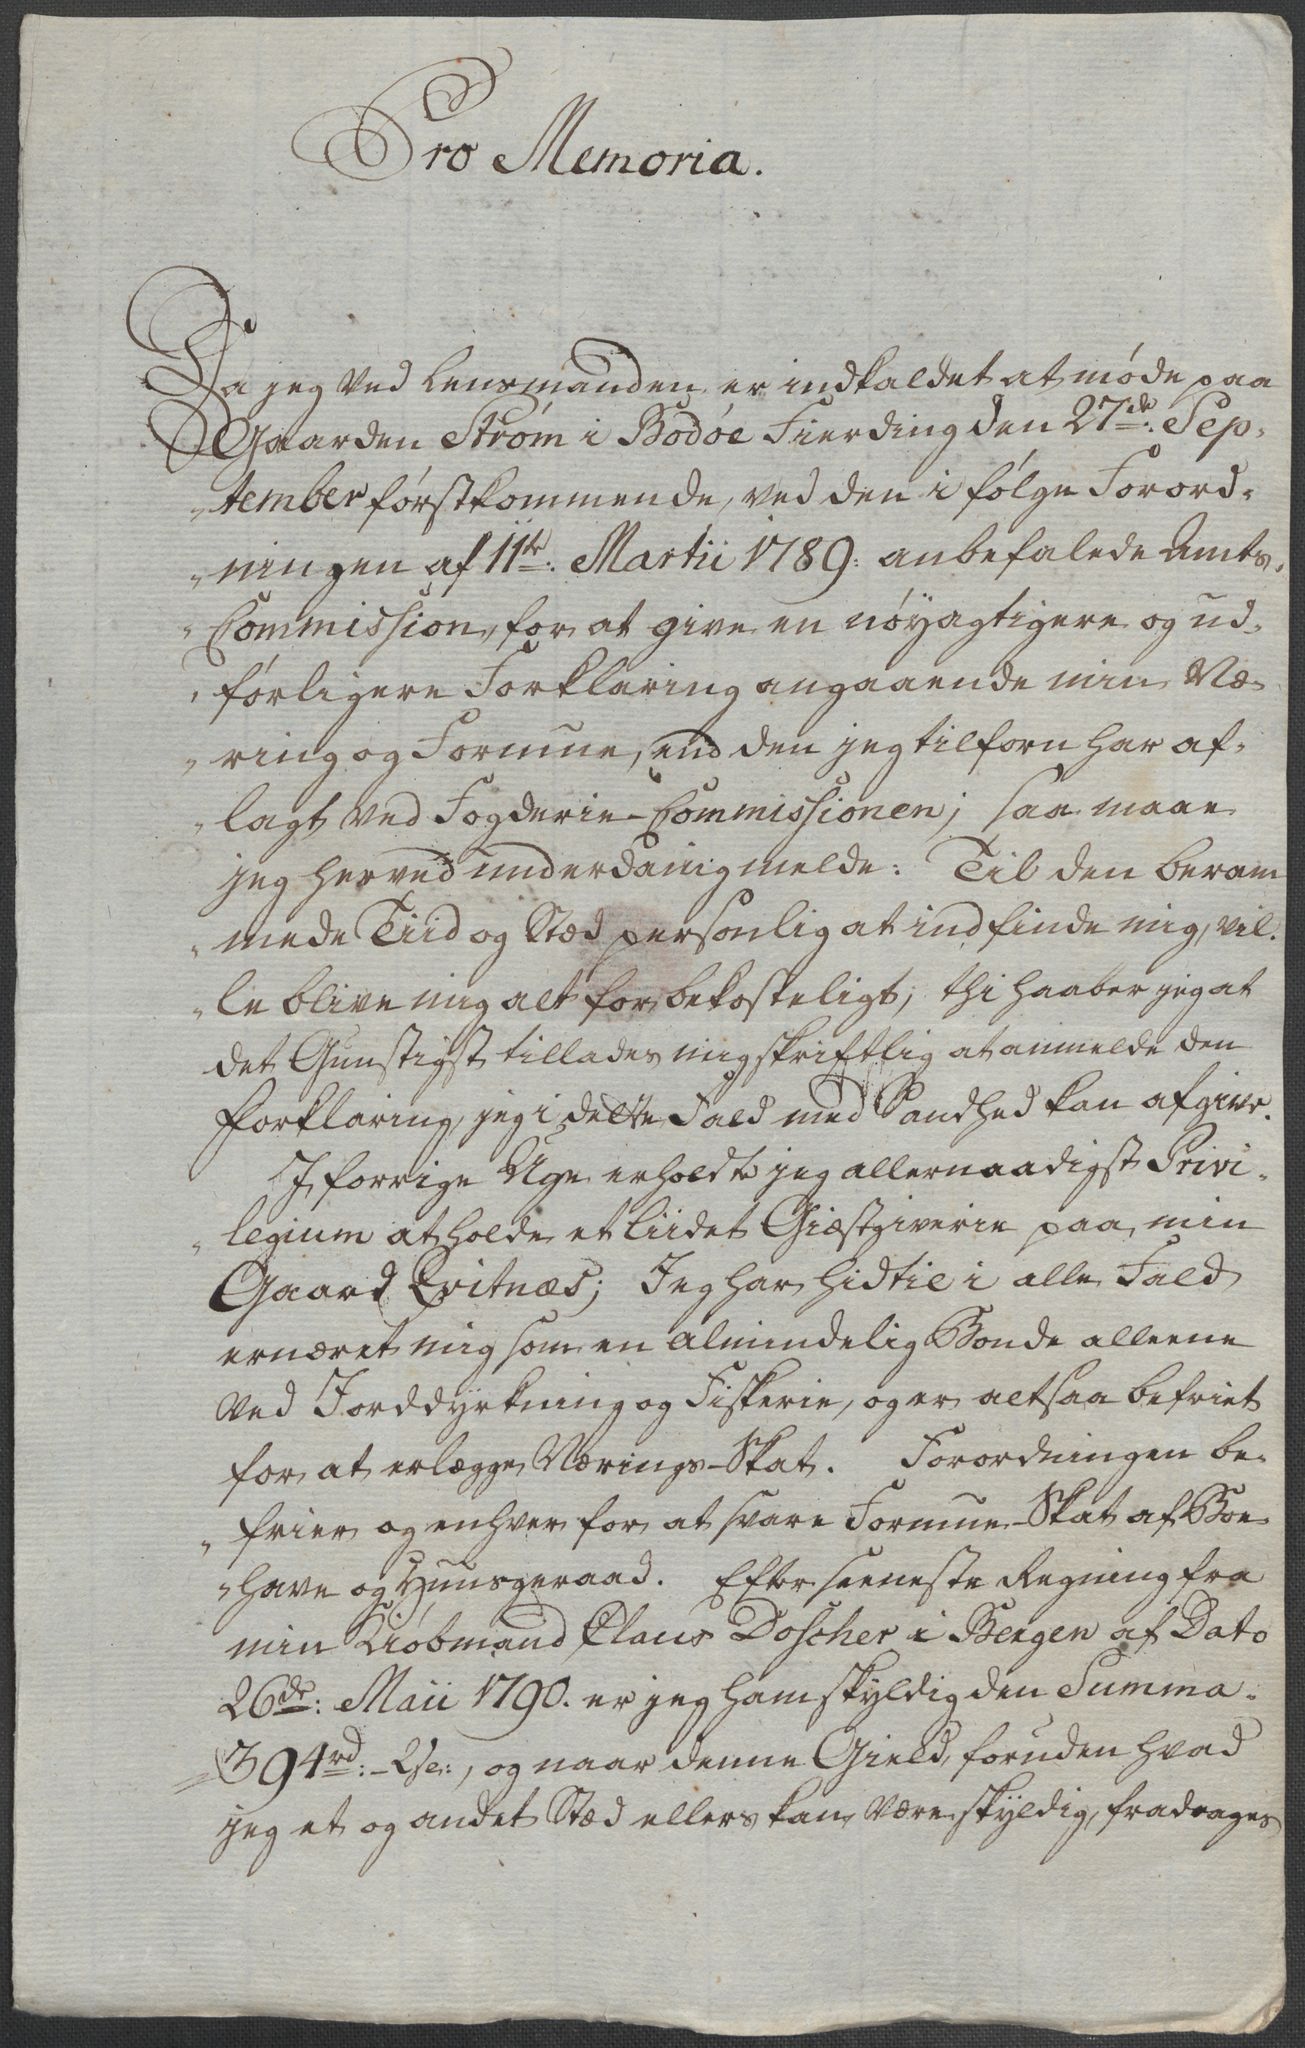 Pro Memoria.
Da jeg ved Lensmanden er indkaldet at møde paa
Gaarden Strøm i Bodøe Fierding den 27de: Sep-
tember førstkommende, ved den i følge Forord-
ningen af 11te: Martii 1789: anbefalede Amts-
Commission, for at give en nøyagtigere og ud-
førligere Forklaring angaaende min Næ-
ring og Formue, end den jeg tilforn har af-
lagt ved Fogderie-Commissionen; saa maae
jeg herved underdanig melde: Til den beram
mede Tiid og Stæd personlig at indfinde mig, vil-
le blive mig alt for bekosteligt; thi haaber jeg at
det Gunstigst tillades mig skriftlig at anmelde den
Forklaring, jeg i dette Fald med Sandhed kan afgive.
I forrige Uge erholdte jeg allernaadigst Privi-
legium at holde et liidet Giæstgiverie paa min
Gaard Qvitnæs; Jeg har hidtil i alle Fald
ernæret mig som en almindelig Bonde alleene
ved Jorddyrkning og Fiskerie, og er altsaa befriet
for at erlægge Nærings-Skat. Forordningen be-
frier og enhver for at svare Formue-Skat af Boe-
have og Huusgeraad. Efter seeneste Regning fra
min Kiøbmand Claus Doscher i Bergen af Dato
26de: Maii 1790. er jeg ham skyldig den Summa
394rd:, og naar denne Gield, foruden hvad
jeg et og andet Stæd ellers kan være skyldig, fradrages